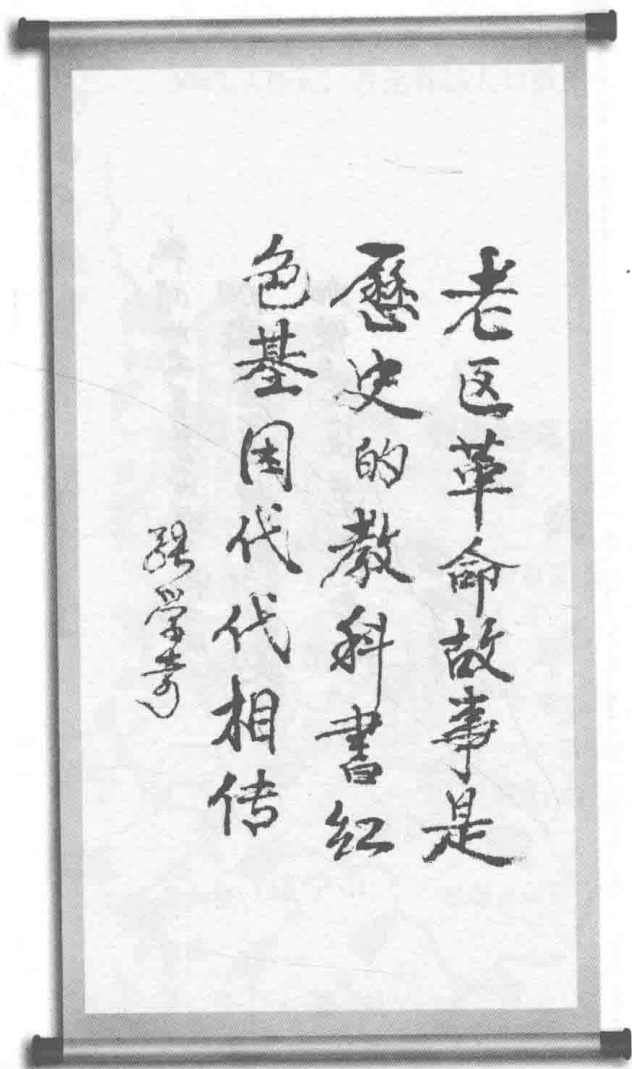 老区革命故事是
歷史的教科書红
色基因代代相传
张学奇